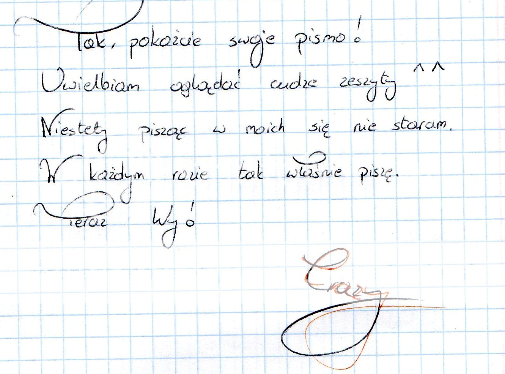 Tak, pokażcie swoje pismo!
Uwielbiam oglądać cudze zeszyty ^^
Niestety pisząc w moich się nie staram.
W każdym razie tak właśnie piszę.
Teraz Wy!
Crazy